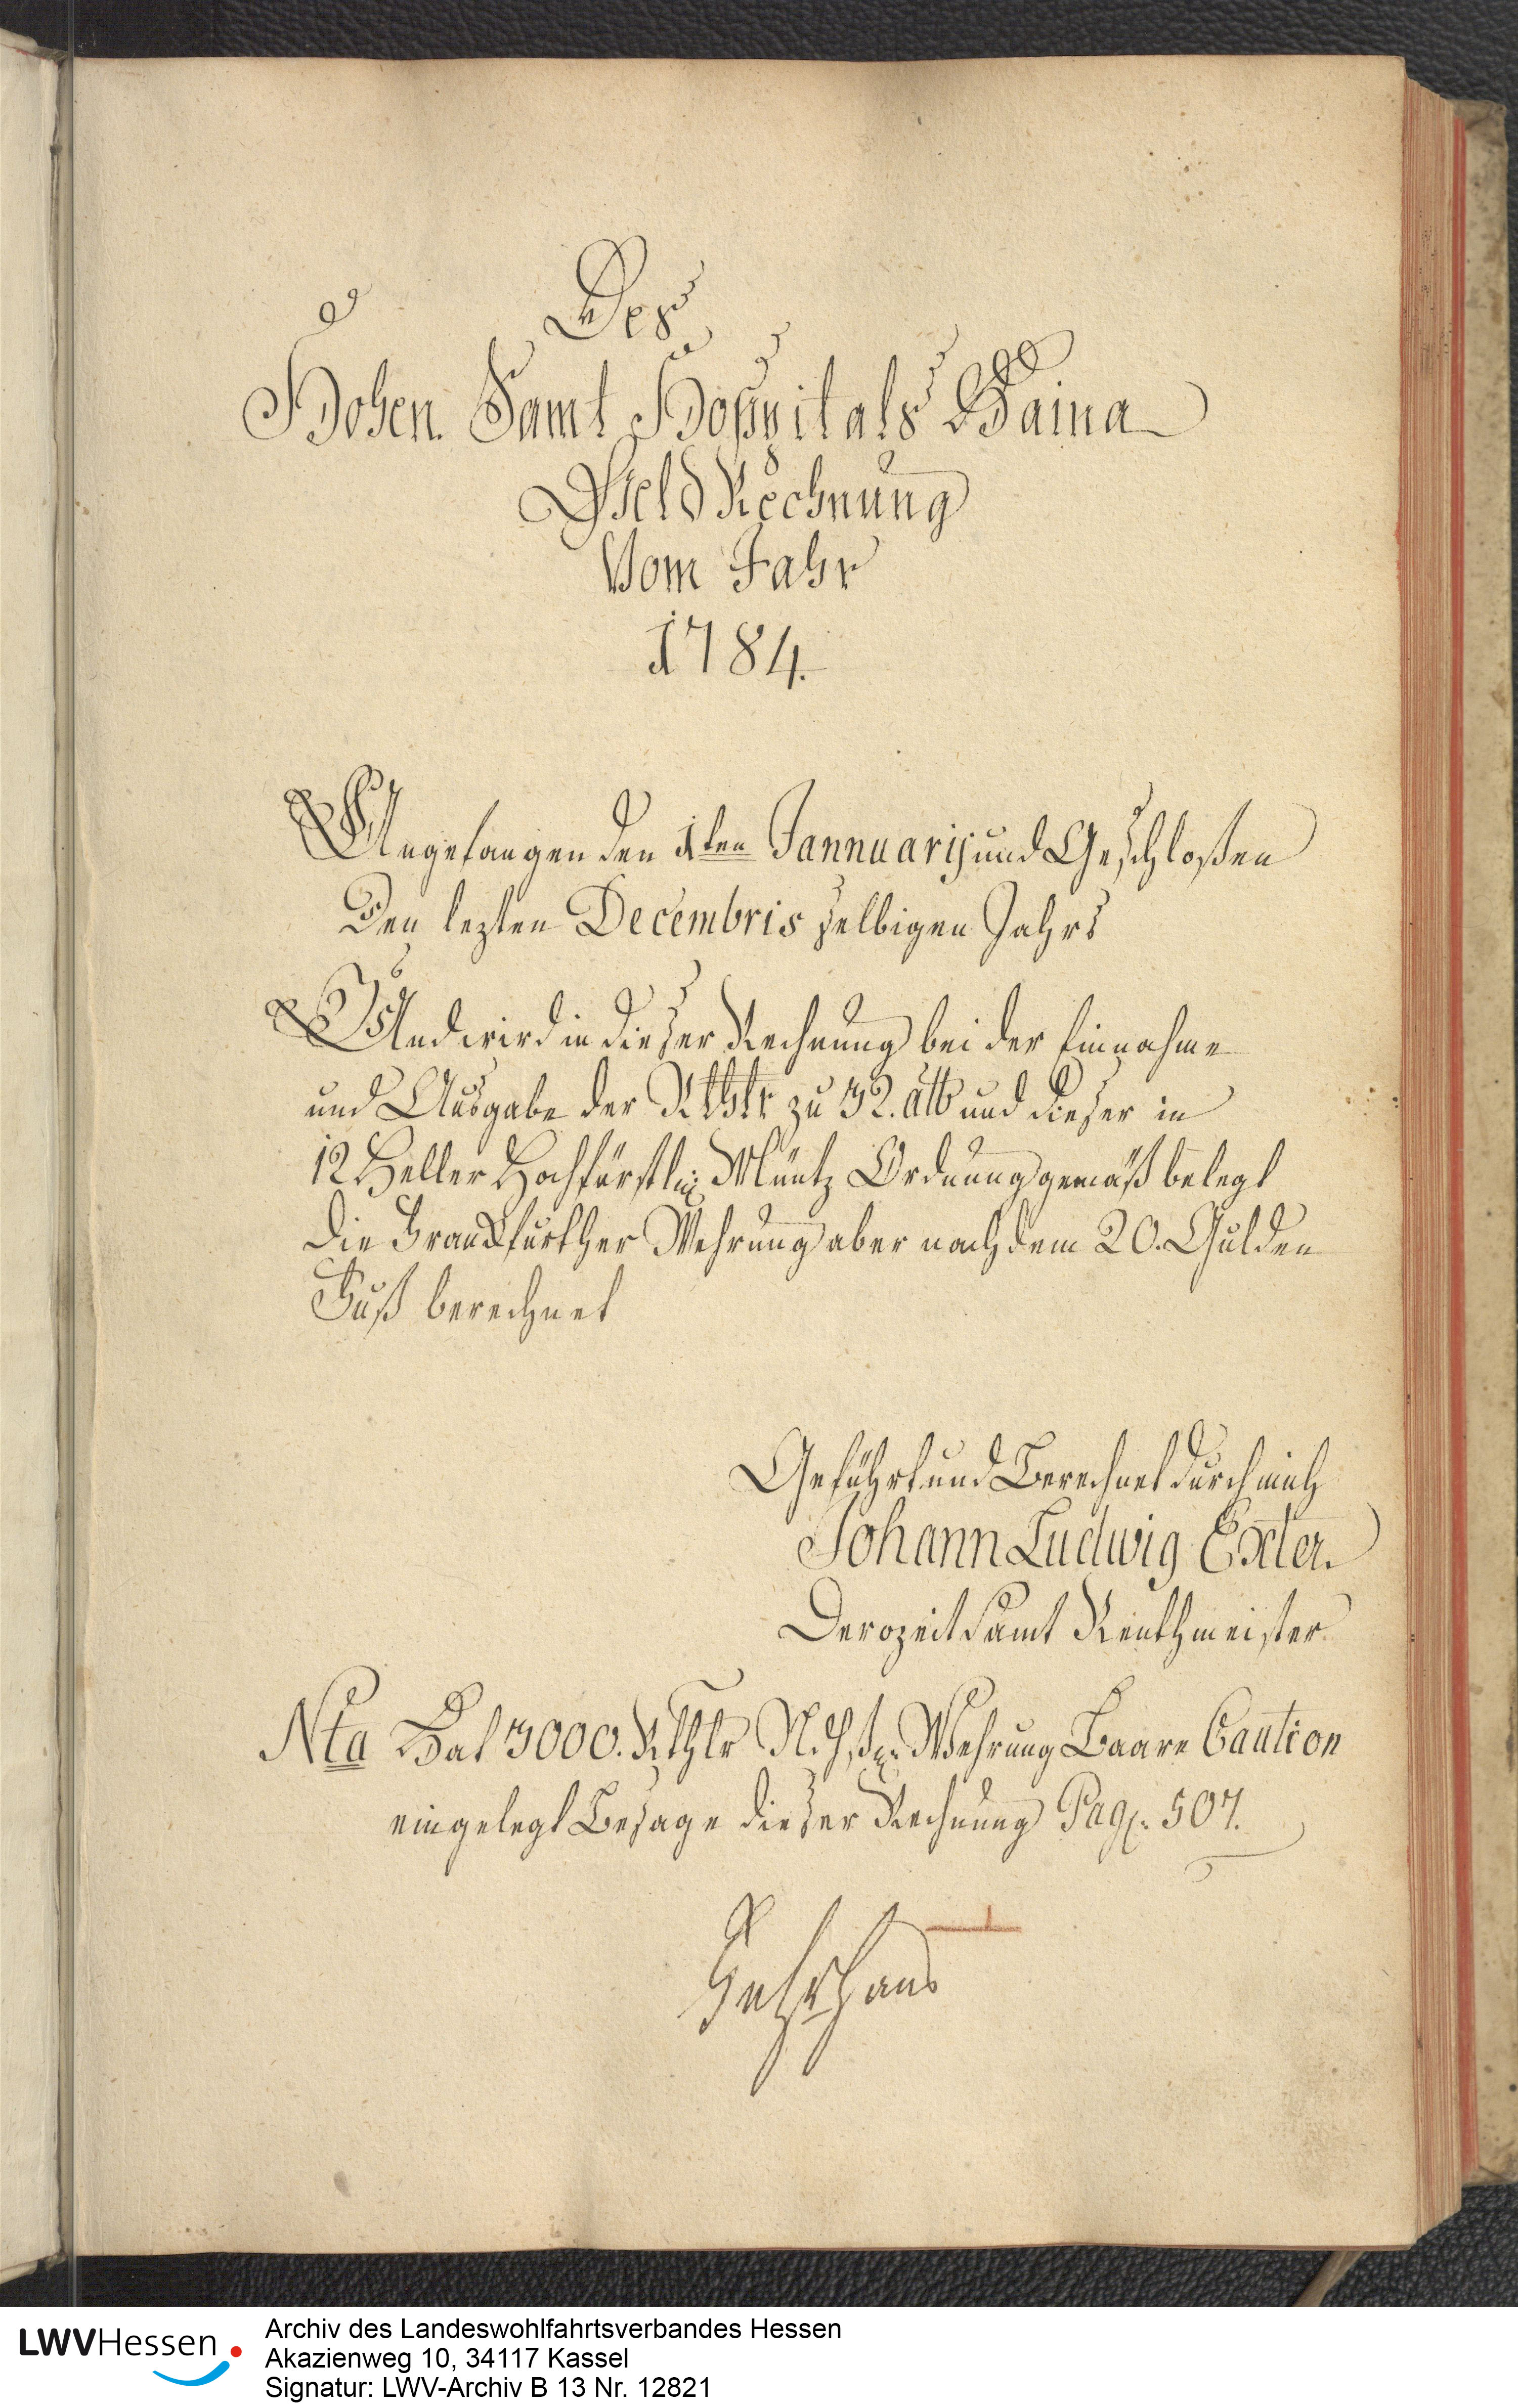 Des
Hohen Samt Hospitals Haina
Geld Rechnung
Vom Jahr
1784.
Angefangen den 1ten Jannuarij und Geschloßen
Den lezten Decembris selbigen Jahrs
Und wird in dieser Rechnung bei der Einnahme
und Ausgabe der Rthlr zu 32. alb und dieser in
12 Heller Hochfürstl: Müntz Ordnung gemäß belegt
die Franckfurther Wehrung aber nach dem 20. Gulden
Fuß berechnet
Geführt und Berechnet durch mich
Johann Ludwig Exter.
Derozeit Samt Renthmeister
Nta Hat 3000. Rthlr N. Hß. Wehrung Baare Caution
eingelegt Besage dieser Rechnung Pag. 507.
LWVHessen
Archiv des Landeswohlfahrtsverbandes Hessen
Akazienweg 10, 34117 Kassel
Signatur: LWV-Archiv B 13 Nr. 12821